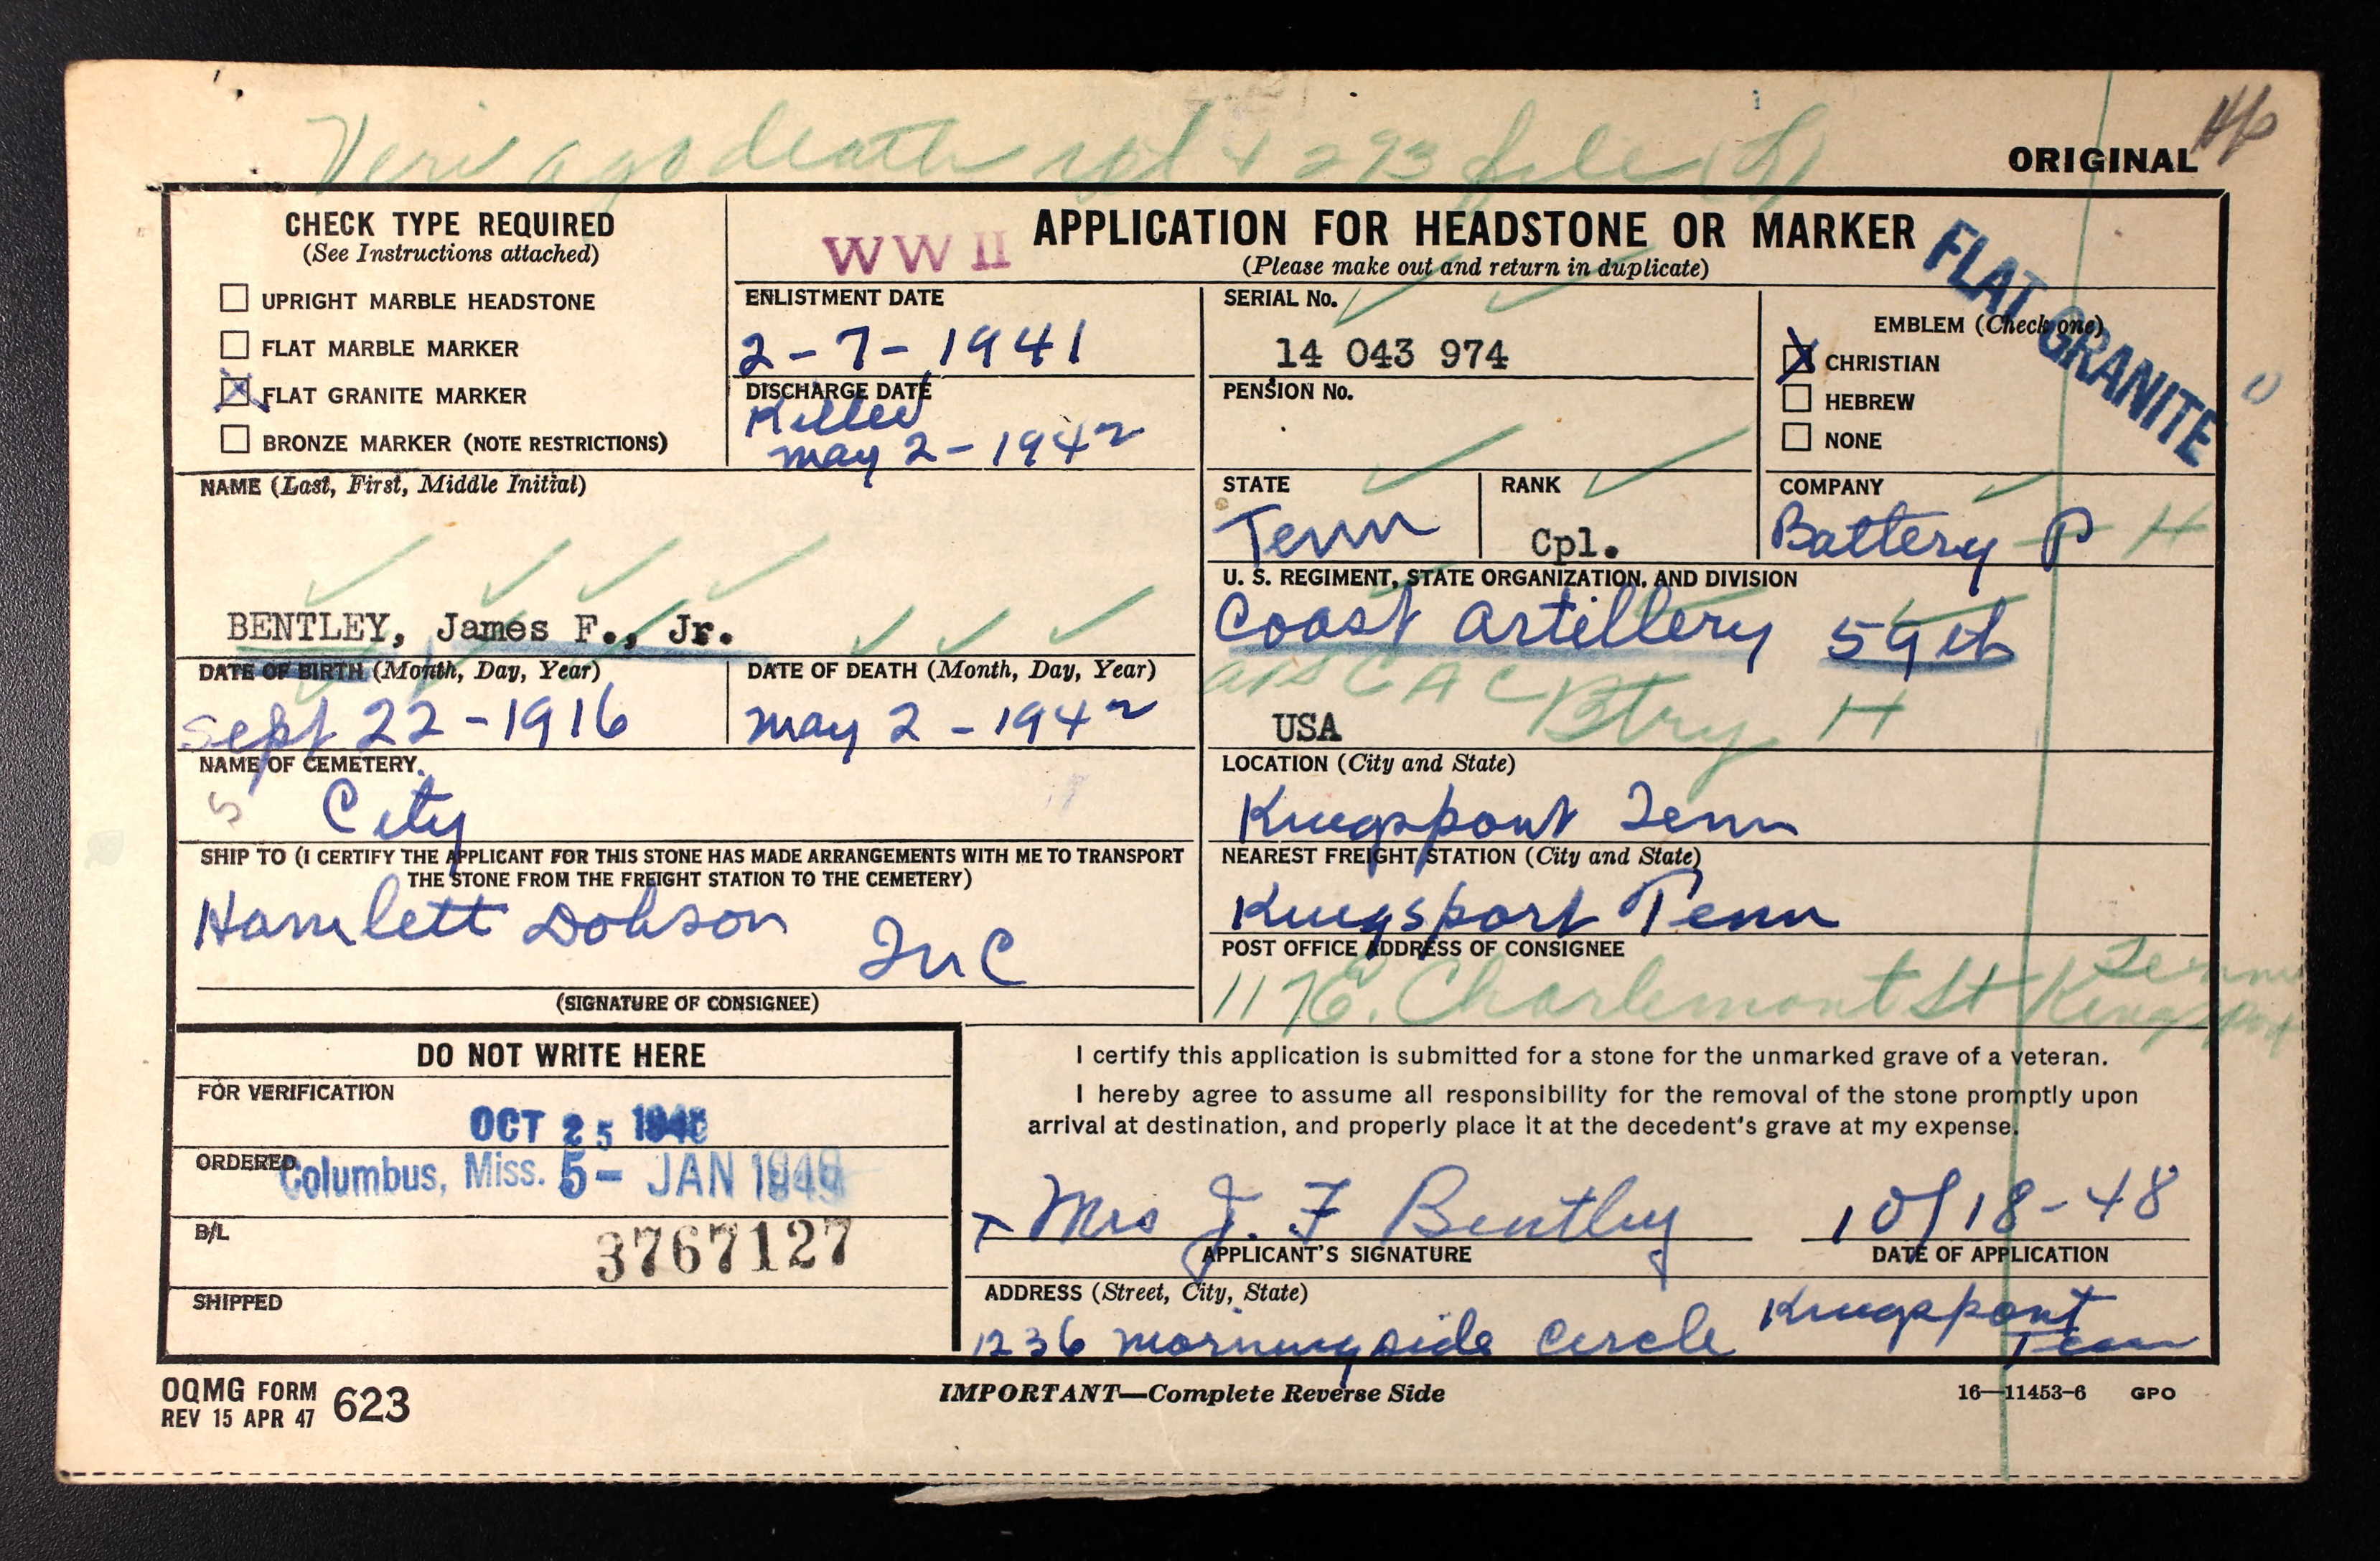 death rpt + 293 file
ORIGINAL
CHECK TYPE REQUIRED
(See Instructions attached)
UPRIGHT MARBLE HEADSTONE
FLAT MARBLE MARKER
FLAT GRANITE MARKER
BRONZE MARKER (NOTE RESTRICTIONS)
WW II
APPLICATION FOR HEADSTONE OR MARKER
(Please make out and return in duplicate)
FLAT GRANITE
ENLISTMENT DATE
2-7-1941
DISCHARGE DATE
Killed
may 2-1942
SERIAL No.
14 043 974
PENSION No.
EMBLEM (Check one)
CHRISTIAN
HEBREW
NONE
NAME (Last, First, Middle Initial)
BENTLEY, James F., Jr.
STATE
Tenn
RANK
Cpl.
COMPANY
Battery P H
U. S. REGIMENT, STATE ORGANIZATION, AND DIVISION
Coast artillery 59th
CAC Btry H
USA
DATE OF BIRTH (Month, Day, Year)
Sept 22-1916
DATE OF DEATH (Month, Day, Year)
may 2-1942
NAME OF CEMETERY
City
LOCATION (City and State)
Kingsport Tenn
SHIP TO (I CERTIFY THE APPLICANT FOR THIS STONE HAS MADE ARRANGEMENTS WITH ME TO TRANSPORT
THE STONE FROM THE FREIGHT STATION TO THE CEMETERY)
Hamlett Dobson
Inc
(SIGNATURE OF CONSIGNEE)
NEAREST FREIGHT STATION (City and State)
Kingsport Tenn
POST OFFICE ADDRESS OF CONSIGNEE
117 E. Charlemont St Kingsport
Tenn
DO NOT WRITE HERE
FOR VERIFICATION
OCT 25 1948
ORDERED
Columbus, Miss. 5- JAN 1949
B/L
3767127
SHIPPED
I certify this application is submitted for a stone for the unmarked grave of a veteran.
I hereby agree to assume all responsibility for the removal of the stone promptly upon
arrival at destination, and properly place it at the decedent's grave at my expense.
Mrs J. F Bentley
10/18-48
APPLICANT'S SIGNATURE
DATE OF APPLICATION
ADDRESS (Street, City, State)
1236 morningside circle Kingsport
Tenn
OQMG FORM 623
REV 15 APR 47
IMPORTANT—Complete Reverse Side
16—11453-6 GPO